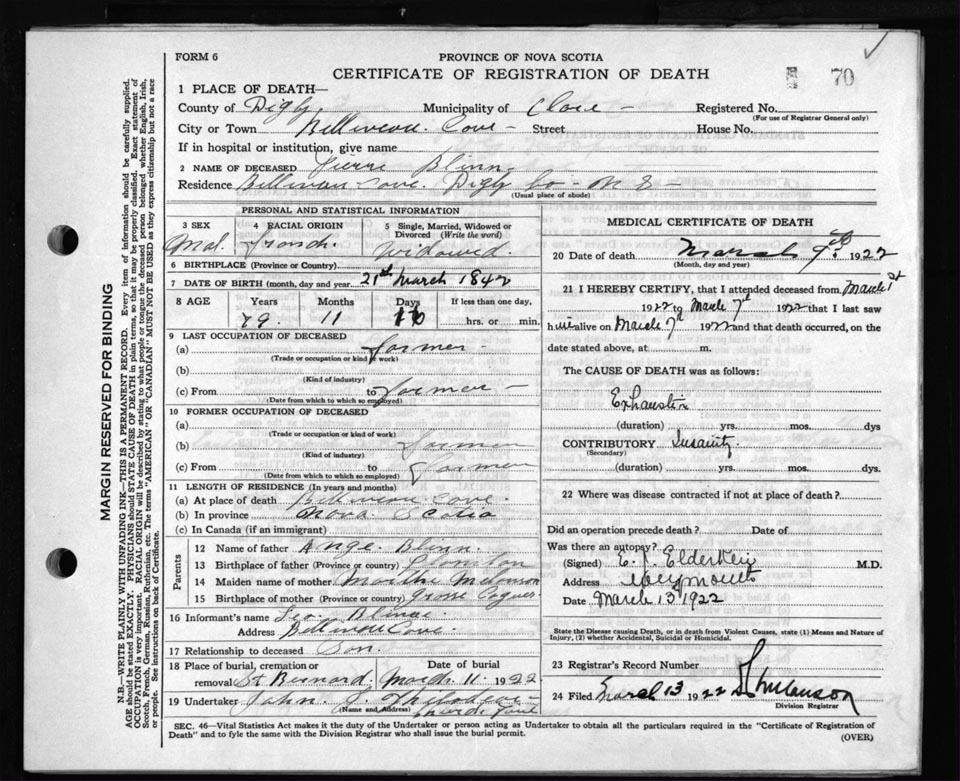 FORM 6
PROVINCE OF NOVA SCOTIA
CERTIFICATE OF REGISTRATION OF DEATH
70
1 PLACE OF DEATH—
County of Digby Municipality of Clare – Registered No.
(For use of Registrar General only)
City or Town Belliveau Cove – Street House No.
If in hospital or institution, give name
2 NAME OF DECEASED Pierre Blinn.
Residence Cove. Digby Co – N S –
(Usual place of abode)
PERSONAL AND STATISTICAL INFORMATION
3 SEX
Mal.
4 RACIAL ORIGIN
French
5 Single, Married, Widowed or Divorced (Write the word)
Widowed.
6 BIRTHPLACE (Province or Country)
7 DATE OF BIRTH (month, day and year) 21st March 1842
8 AGE Years Months Days If less than one day,
79. 11 hrs. or min.
9 LAST OCCUPATION OF DECEASED
(a) farmer –
(Trade or occupation or kind of work)
(b)
(Kind of industry)
(c) From to farmer –
(Date from which to which so employed)
10 FORMER OCCUPATION OF DECEASED
(a)
(Trade or occupation or kind of work)
(b) farmer
(Kind of industry)
(c) From to farmer
(Date from which to which so employed)
11 LENGTH OF RESIDENCE (In years and months)
(a) At place of death Belliveau Cove.
(b) In province Nova Scotia
(c) In Canada (if an immigrant)
Parents
12 Name of father Ange Blinn.
13 Birthplace of father (Province or country)
14 Maiden name of mother Marthe Melanson
15 Birthplace of mother (Province or country) Grosse Coques
16 Informant's name Leo
Address Cove.
17 Relationship to deceased Son.
18 Place of burial, cremation or removal St Bernard. Date of burial March 11. 1922
19 Undertaker John J.
(Name and Address)
MEDICAL CERTIFICATE OF DEATH
20 Date of death March 9th 1922
(Month, day and year)
21 I HEREBY CERTIFY, that I attended deceased from March 1st
1922 to March 7th 1922 that I last saw
him alive on March 7th 1922 and that death occurred, on the
date stated above, at m.
The CAUSE OF DEATH was as follows:
Exhaustion
(duration) yrs. mos. dys
CONTRIBUTORY Insanity
(Secondary)
(duration) yrs. mos. dys.
22 Where was disease contracted if not at place of death?
Did an operation precede death? Date of
Was there an autopsy?
(Signed) Elderkin M.D.
Address Weymouth
Date March 13 1922
State the Disease causing Death, or in death from Violent Causes, state (1) Means and Nature of
Injury, (2) whether Accidental, Suicidal or Homicidal.
23 Registrar's Record Number
24 Filed March 13 1922 Melanson
Division Registrar
SEC. 46—Vital Statistics Act makes it the duty of the Undertaker or person acting as Undertaker to obtain all the particulars required in the "Certificate of Registration of
Death" and to fyle the same with the Division Registrar who shall issue the burial permit.
(OVER)
MARGIN RESERVED FOR BINDING
N.B.—WRITE PLAINLY WITH UNFADING INK—THIS IS A PERMANENT RECORD. Every item of information should be carefully supplied.
AGE should be stated EXACTLY. PHYSICIANS should STATE CAUSE OF DEATH in plain terms, so that it may be properly classified. Exact statement of
OCCUPATION is very important. RACIAL ORIGIN will be described by stating to what people or tongue the deceased person belonged whether English, Irish,
Scotch, French, German, Russian, Ruthenian, etc. The terms "AMERICAN" or "CANADIAN" MUST NOT BE USED as they express citizenship but not a race
or people. See instructions on back of Certificate.